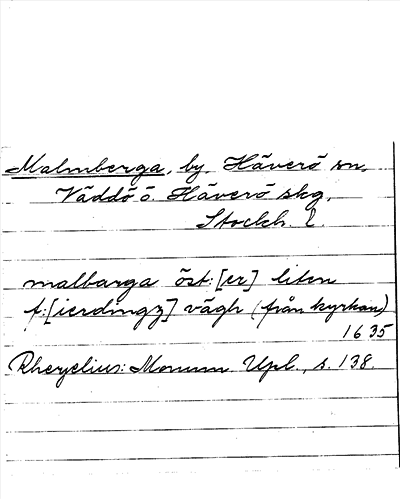 Malmberga, by, Häverö sn,
Väddö o. Häverö skg,
Stockh l.
malbarga öst:[er] liten
f:[ierdingz] vägh (från kyrkan)
1635
Rhezelius: Monum. Upl., s. 138.